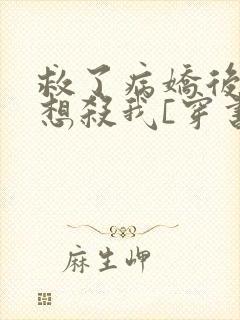 救了病嬌後
想殺我[穿書
麻生岬